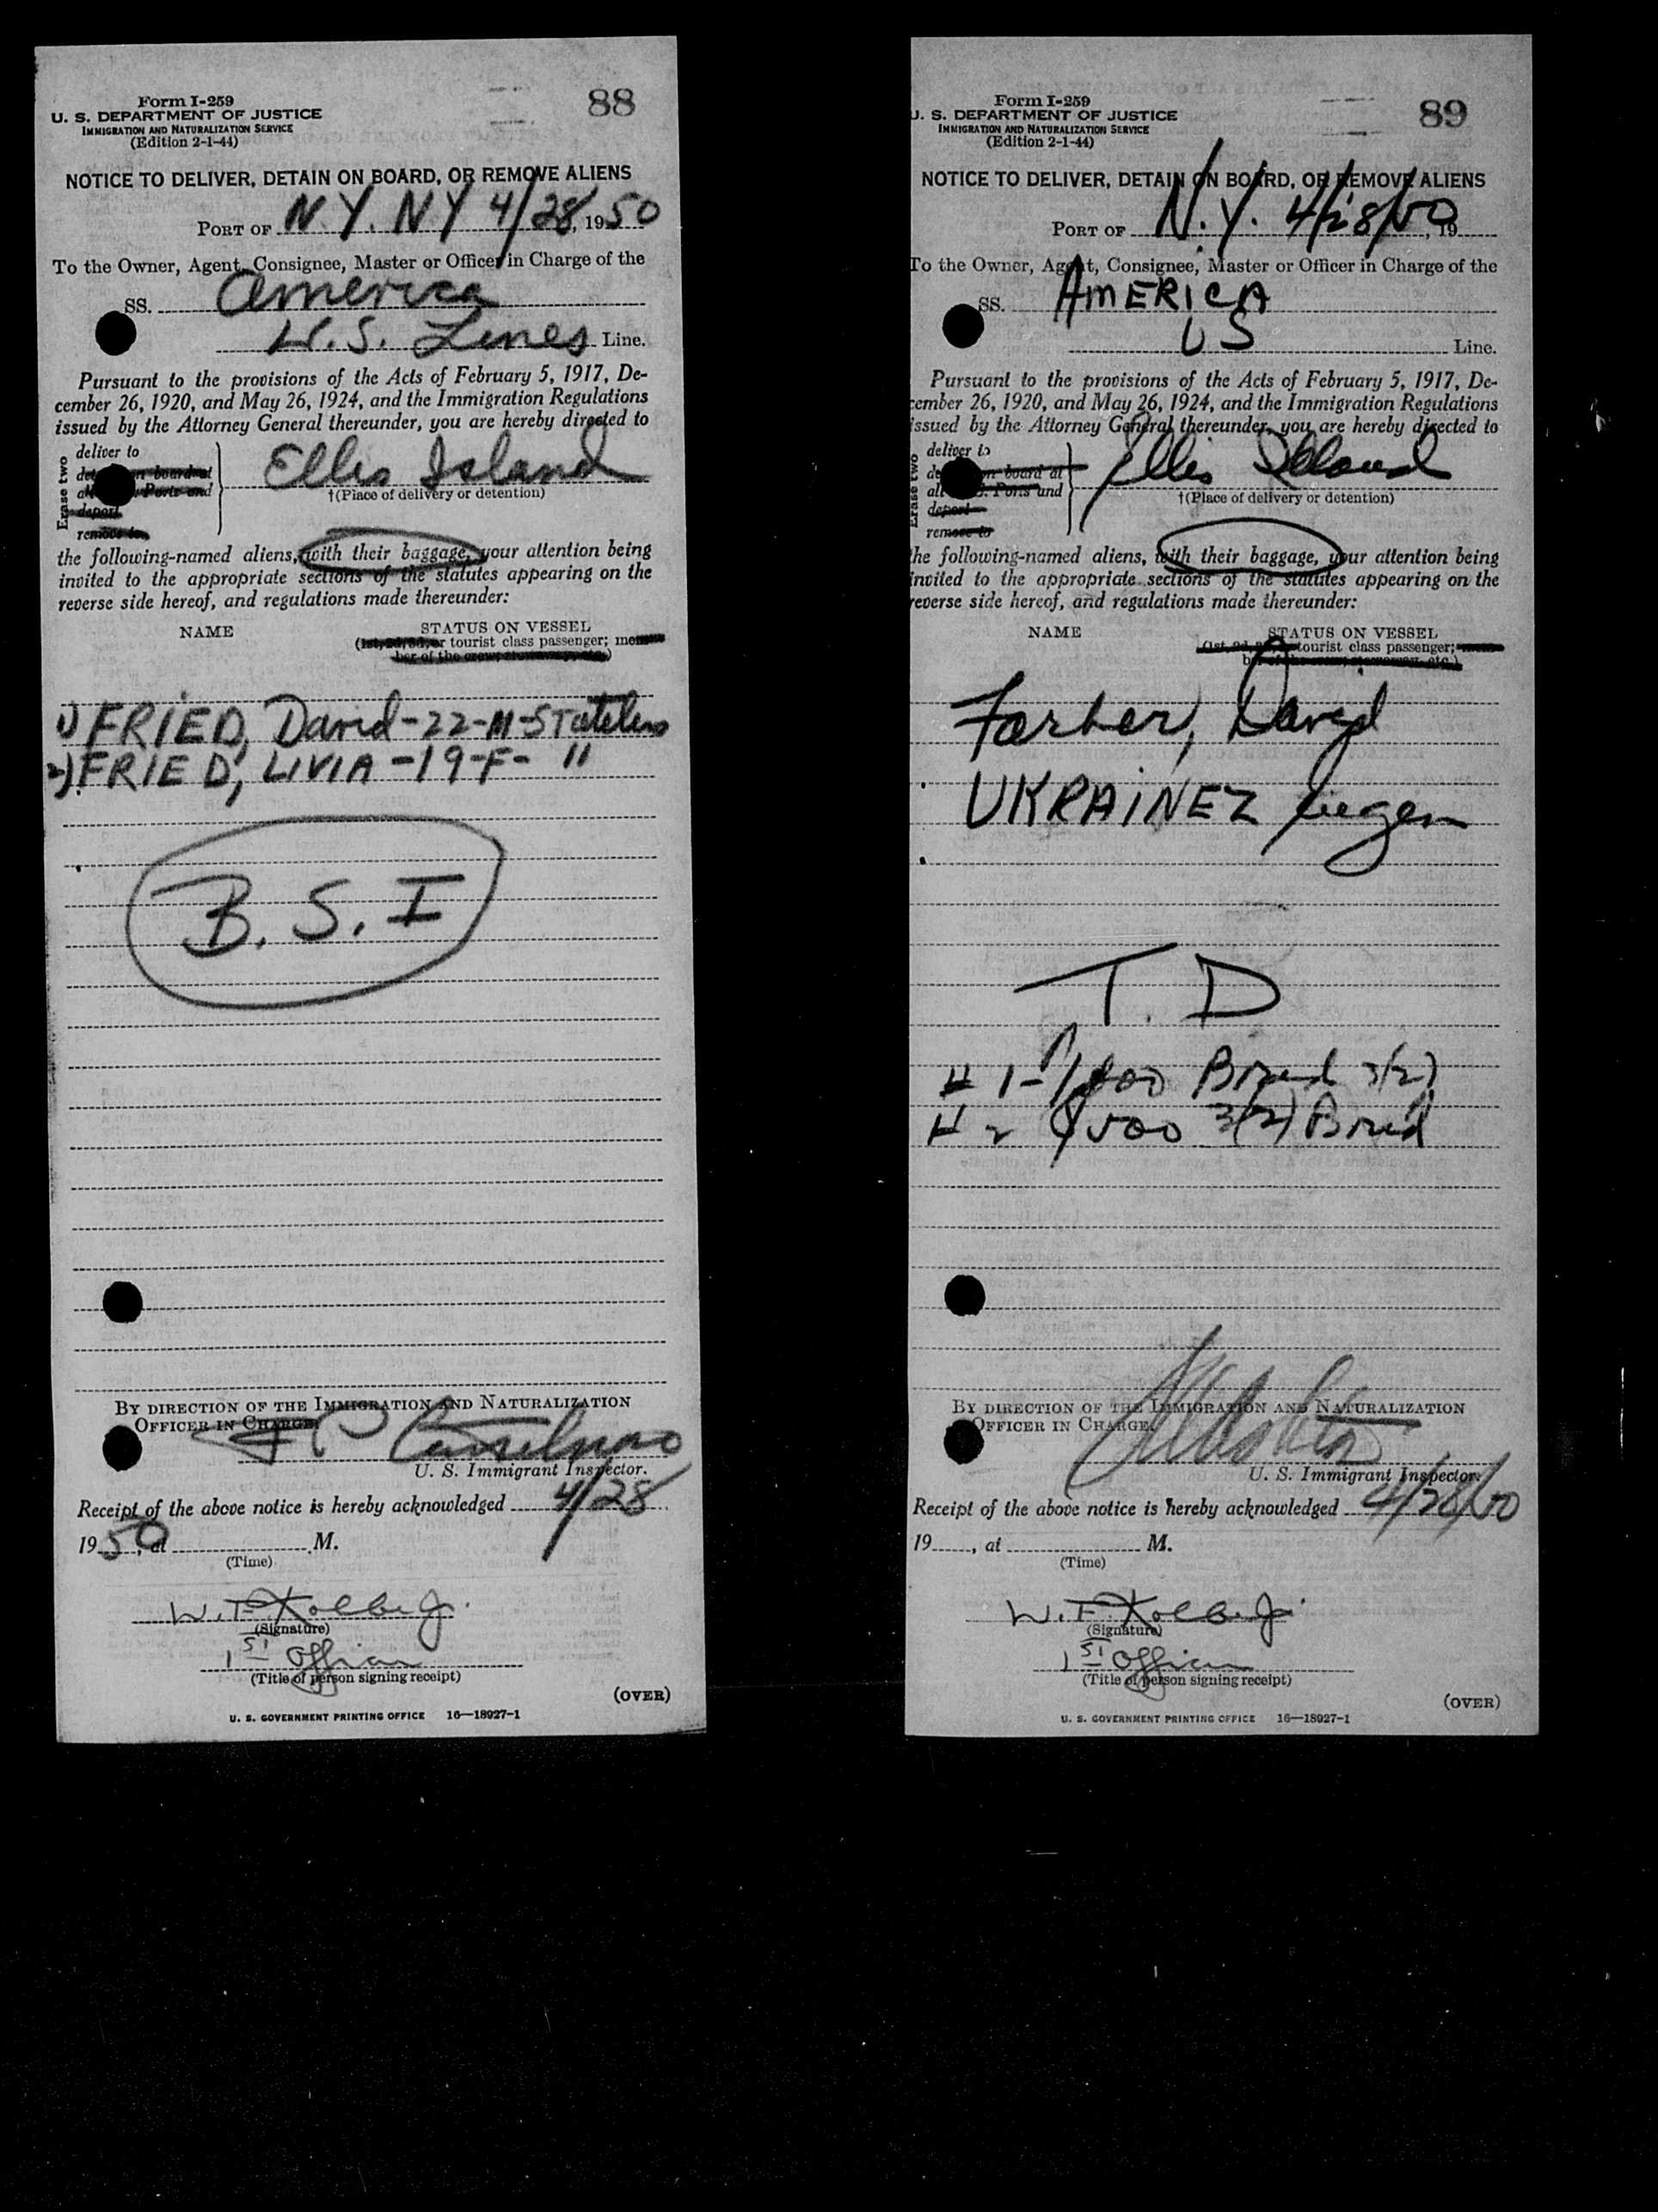 88
Form I-259
U. S. DEPARTMENT OF JUSTICE
IMMIGRATION AND NATURALIZATION SERVICE
(Edition 2-1-44)
NOTICE TO DELIVER, DETAIN ON BOARD, OR REMOVE ALIENS
PORT OF N.Y. NY 4/28, 1950
To the Owner, Agent, Consignee, Master or Officer in Charge of the
SS. America
U.S. Lines Line.
Pursuant to the provisions of the Acts of February 5, 1917, De-
cember 26, 1920, and May 26, 1924, and the Immigration Regulations
issued by the Attorney General thereunder, you are hereby directed to
Erase two
deliver to
on board at
Ellis Island
Ports and
†(Place of delivery or detention)
deport
remove to
the following-named aliens, with their baggage, your attention being
invited to the appropriate sections of the statutes appearing on the
reverse side hereof, and regulations made thereunder:
NAME STATUS ON VESSEL
(1st, 2d, 3d, or tourist class passenger; mem-
ber of the crew; stowaway, etc.)
1) FRIED, David-22-M-Stateless
2) FRIED, LIVIA-19-F- "
B.S.I
BY DIRECTION OF THE IMMIGRATION AND NATURALIZATION
OFFICER IN CHARGE
U. S. Immigrant Inspector.
Receipt of the above notice is hereby acknowledged 4/28
1950, at M.
(Time)
W. F. Kolbe Jr.
(Signature)
1st Officer
(Title of person signing receipt)
(OVER)
U. S. GOVERNMENT PRINTING OFFICE 16—18927-1
89
Form I-259
U. S. DEPARTMENT OF JUSTICE
IMMIGRATION AND NATURALIZATION SERVICE
(Edition 2-1-44)
NOTICE TO DELIVER, DETAIN ON BOARD, OR REMOVE ALIENS
PORT OF N.Y. 4/28/50, 19
To the Owner, Agent, Consignee, Master or Officer in Charge of the
SS. AMERICA
US Line.
Pursuant to the provisions of the Acts of February 5, 1917, De-
cember 26, 1920, and May 26, 1924, and the Immigration Regulations
issued by the Attorney General thereunder, you are hereby directed to
Erase two
deliver to
on board at
Ellis Island
all Ports and
†(Place of delivery or detention)
deport
remove to
the following-named aliens, with their baggage, your attention being
invited to the appropriate sections of the statutes appearing on the
reverse side hereof, and regulations made thereunder:
NAME STATUS ON VESSEL
(1st, 2d, tourist class passenger; mem-
ber of the crew; stowaway, etc.)
Farber, David
UKRAINEZ
T.D
# 1- Bond 3(2)
# 2 $500 3(2) Bond
BY DIRECTION OF THE IMMIGRATION AND NATURALIZATION
OFFICER IN CHARGE
U. S. Immigrant Inspector.
Receipt of the above notice is hereby acknowledged 4/28/50
19, at M.
(Time)
W. F. Kolbe Jr.
(Signature)
1st Officer
(Title of person signing receipt)
(OVER)
U. S. GOVERNMENT PRINTING OFFICE 16—18927-1